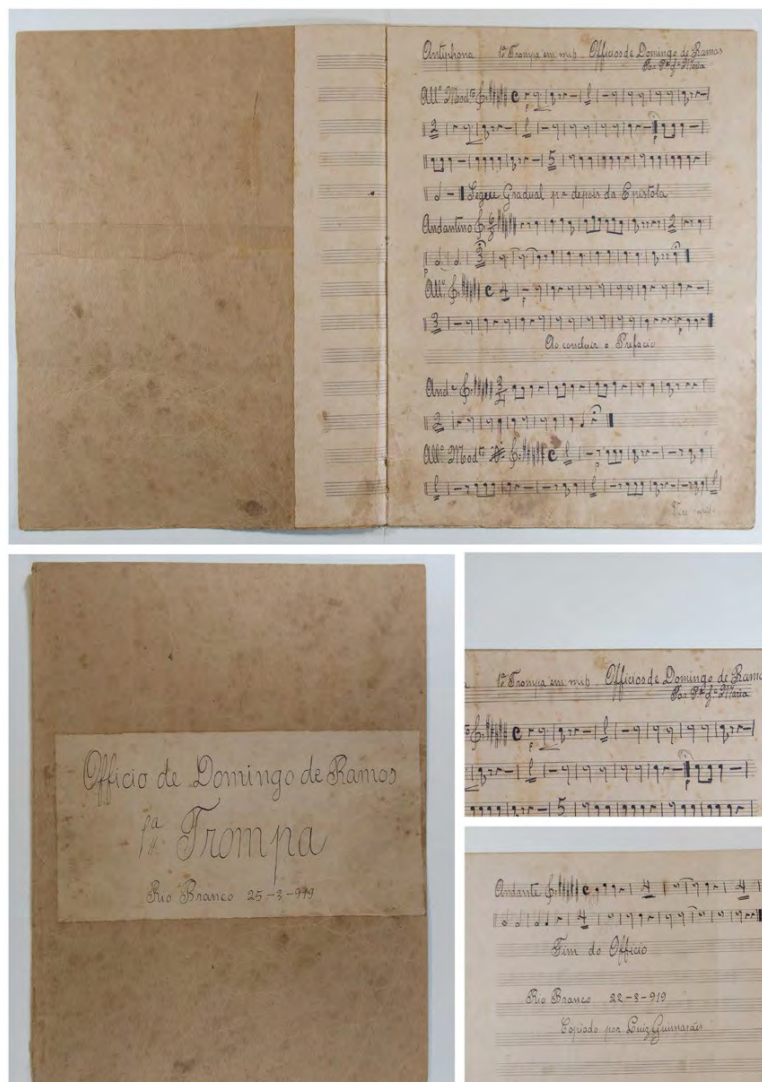 Antiphona 1ª Trompa em mib Officios de Domingo de Ramos
Por Pe Jе Maria
All.º Mod.to
Segue Gradual pª depois da Epistola
Andantino
All.º
Ao concluir o Prefacio
And.e
All.º Mod.to
Officio de Domingo de Ramos
1ª Trompa
Rio Branco 25-3-919
1ª Trompa em mib Officios de Domingo de Ramo
Maria
Andante
Fim do Officio
Rio Branco 22-3-919
Copiado por Luiz Guimarães